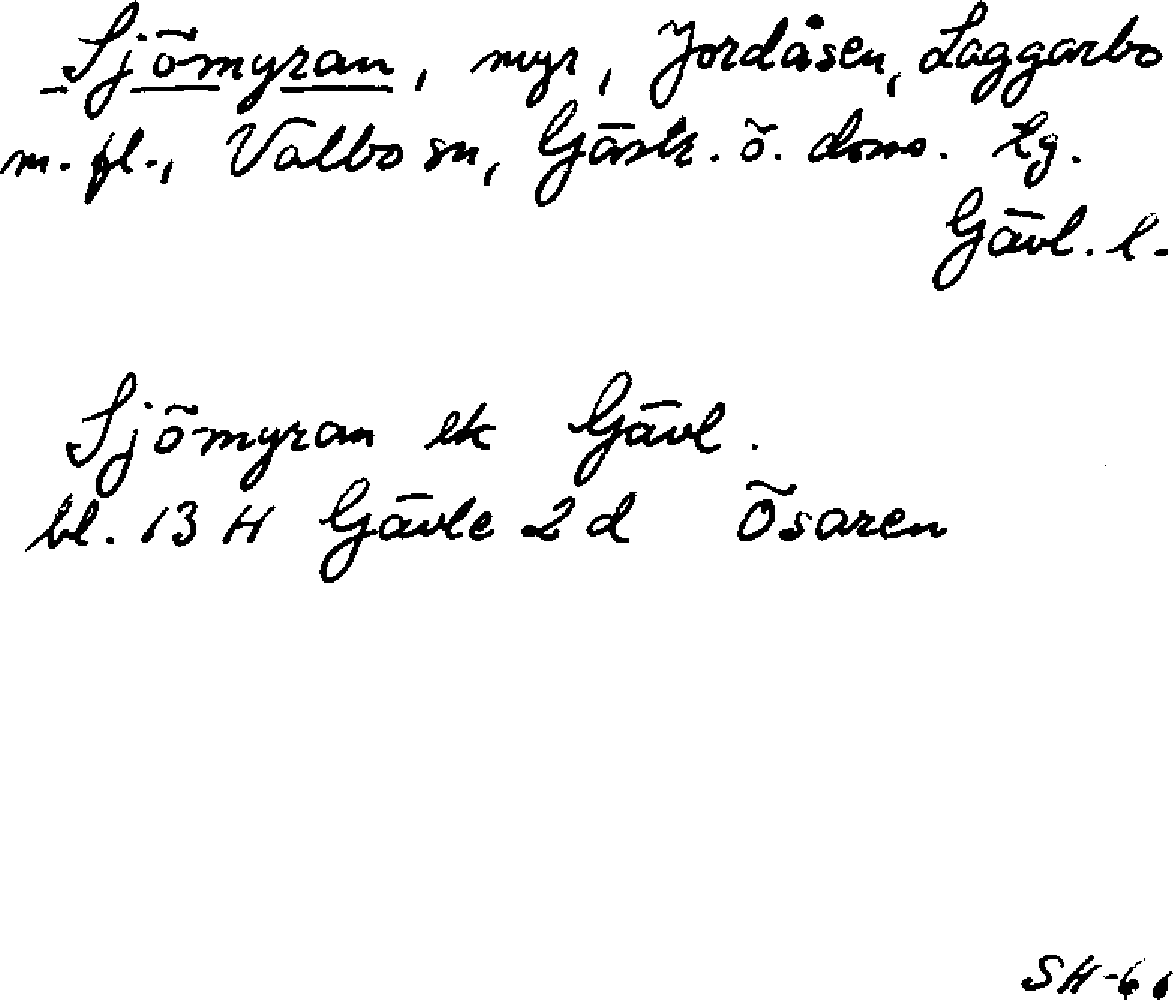 Sjömyran, myr, Jordåsen, Laggarbo
m. fl., Valbo sn, Gästr. ö. doms. lg.
Gävl. l.
Sjömyran ek Gävl.
bl. 13 H Gävle 2 d Ösaren
SH-66